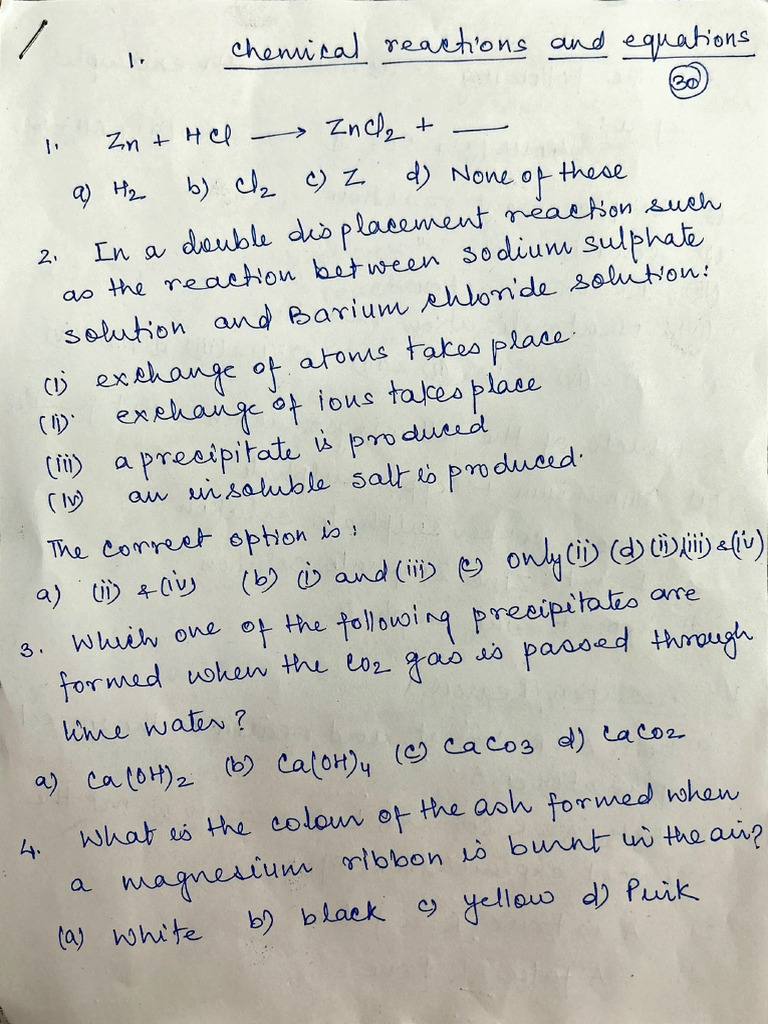 1. chemical reactions and equations
30
1. Zn + HCl → ZnCl2 + ___
a) H2 b) Cl2 c) Z d) None of these
2. In a double displacement reaction such
as the reaction between sodium sulphate
solution and Barium chloride solution:
(i) exchange of atoms takes place.
(ii) exchange of ions takes place
(iii) a precipitate is produced
(iv) an insoluble salt is produced.
The correct option is:
a) (ii) & (iv) (b) (i) and (iii) (c) only (ii) (d) (ii), (iii) & (iv)
3. Which one of the following precipitates are
formed when the CO2 gas is passed through
lime water?
a) Ca(OH)2 (b) Ca(OH)4 (c) CaCO3 d) CaCO2
4. What is the colour of the ash formed when
a magnesium ribbon is burnt in the air?
(a) white b) black c) yellow d) Pink